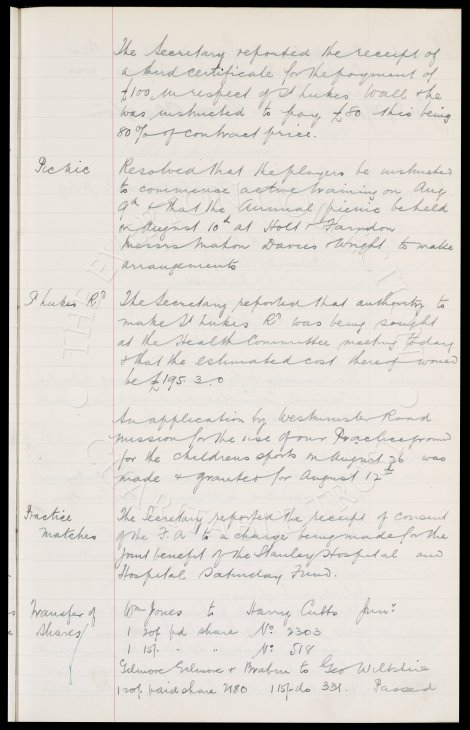 The Secretary reported the receipt of
a third certificate for the payment of
£100 in respect of St Lukes Wall & he
was instructed to pay £80 this being
80% of contract price.
Picnic Resolved that the players be instructed
to commence active training on Aug
9th & that the Annual picnic be held
on August 10th at Holt & Farndon
Messrs Mahon Davies & Wright to make
arrangements
St Lukes Rd The Secretary reported that authority to
make St Lukes Rd was being sought
at the Health Committee meeting today
& that the estimated cost thereof would
be £195.3.0
An application by Westminster Road
Mission for the use of our Practice ground
for the childrens sports on August 26 was
made & granted for August 12th
Practice The Secretary reported the receipt of consent
Matches of the F.A. to a charge being made for the
joint benefit of the Stanley Hospital and
Hospital Saturday Fund.
Transfer of Wm Jones to Harry Cutts Junr
Shares 1 20/ pd share No. 2303
1 15/- " " No. 518
Gilmore & Brabin to Geo Wiltshire
1 20/ paid share 2180 1 15/- do 331. Passed